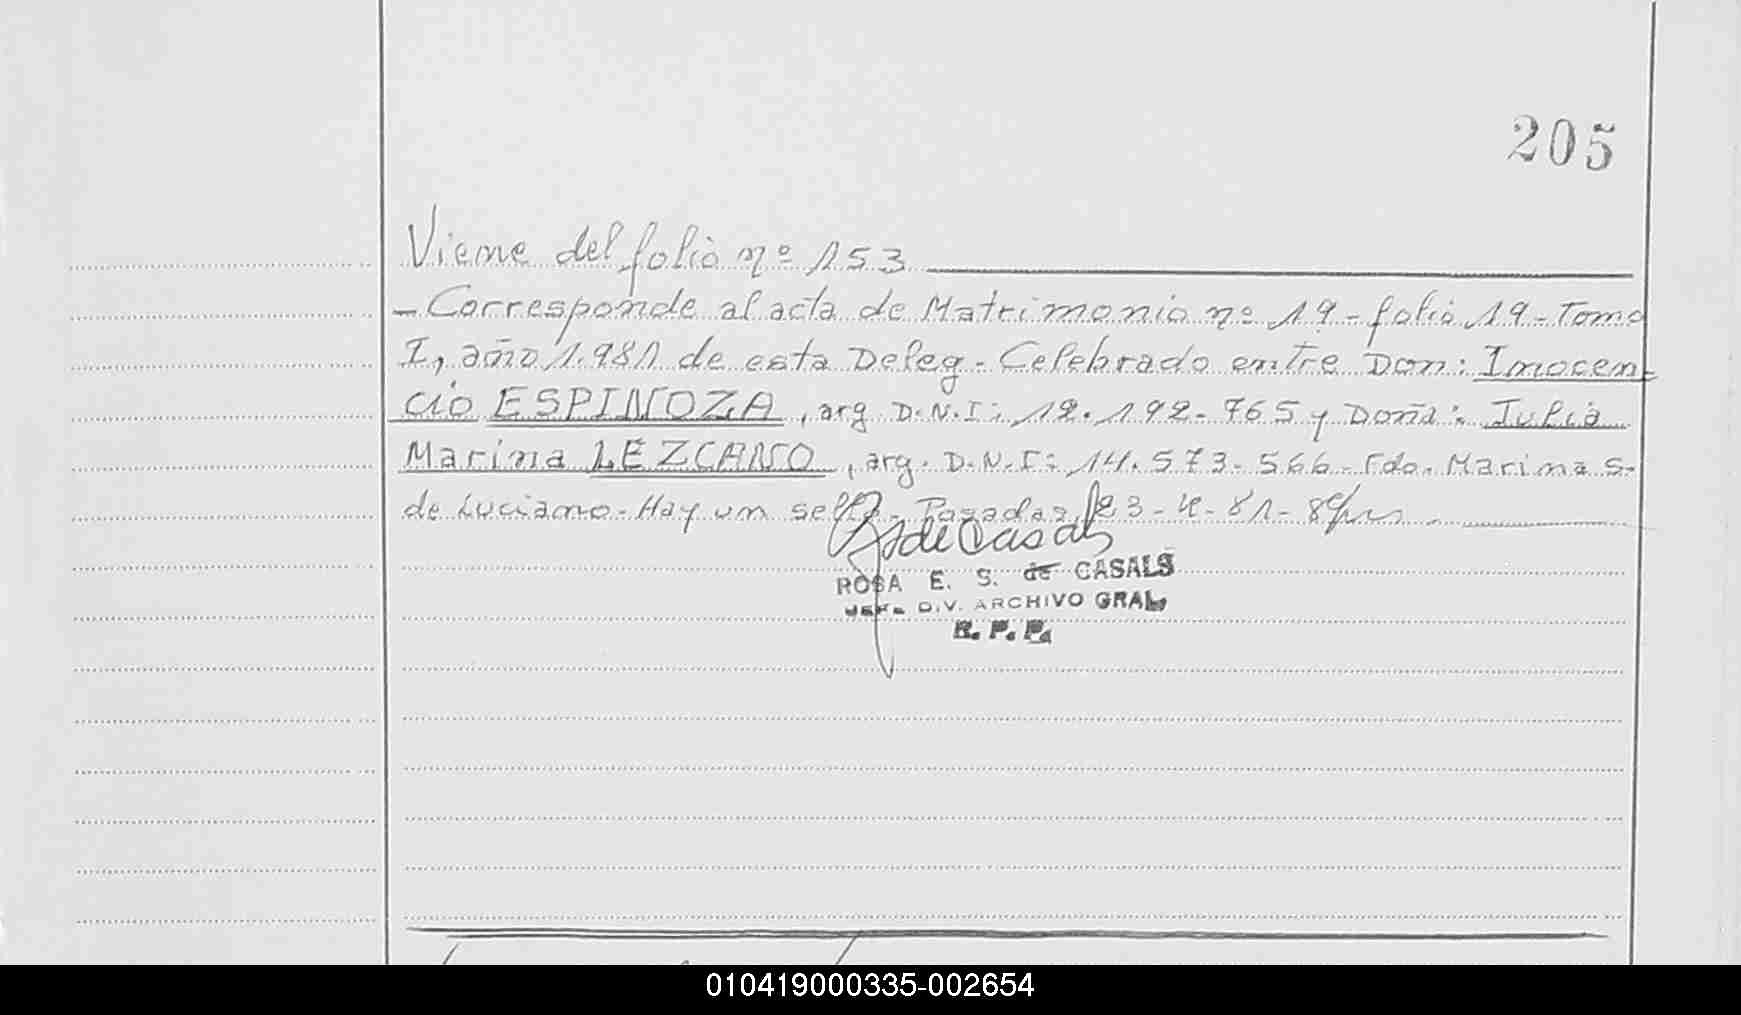 205
Viene del folio nº 153
- Corresponde al acta de Matrimonio nº 19 - folio 19 - Tomo
I, año 1.981 de esta Deleg - Celebrado entre Don: Inocen
cio ESPINOZA, arg D.N.I: 12.192-765 y Doña: Julia
Marina LEZCANO, arg. D.N.I: 14.573-566 - Fdo. Marina S.
de Luciano - Hay un sello - Posadas, 23-4-81-
ROSA E. S. de CASALS
JEFE DIV. ARCHIVO GRAL
R. P. P.
010419000335-002654